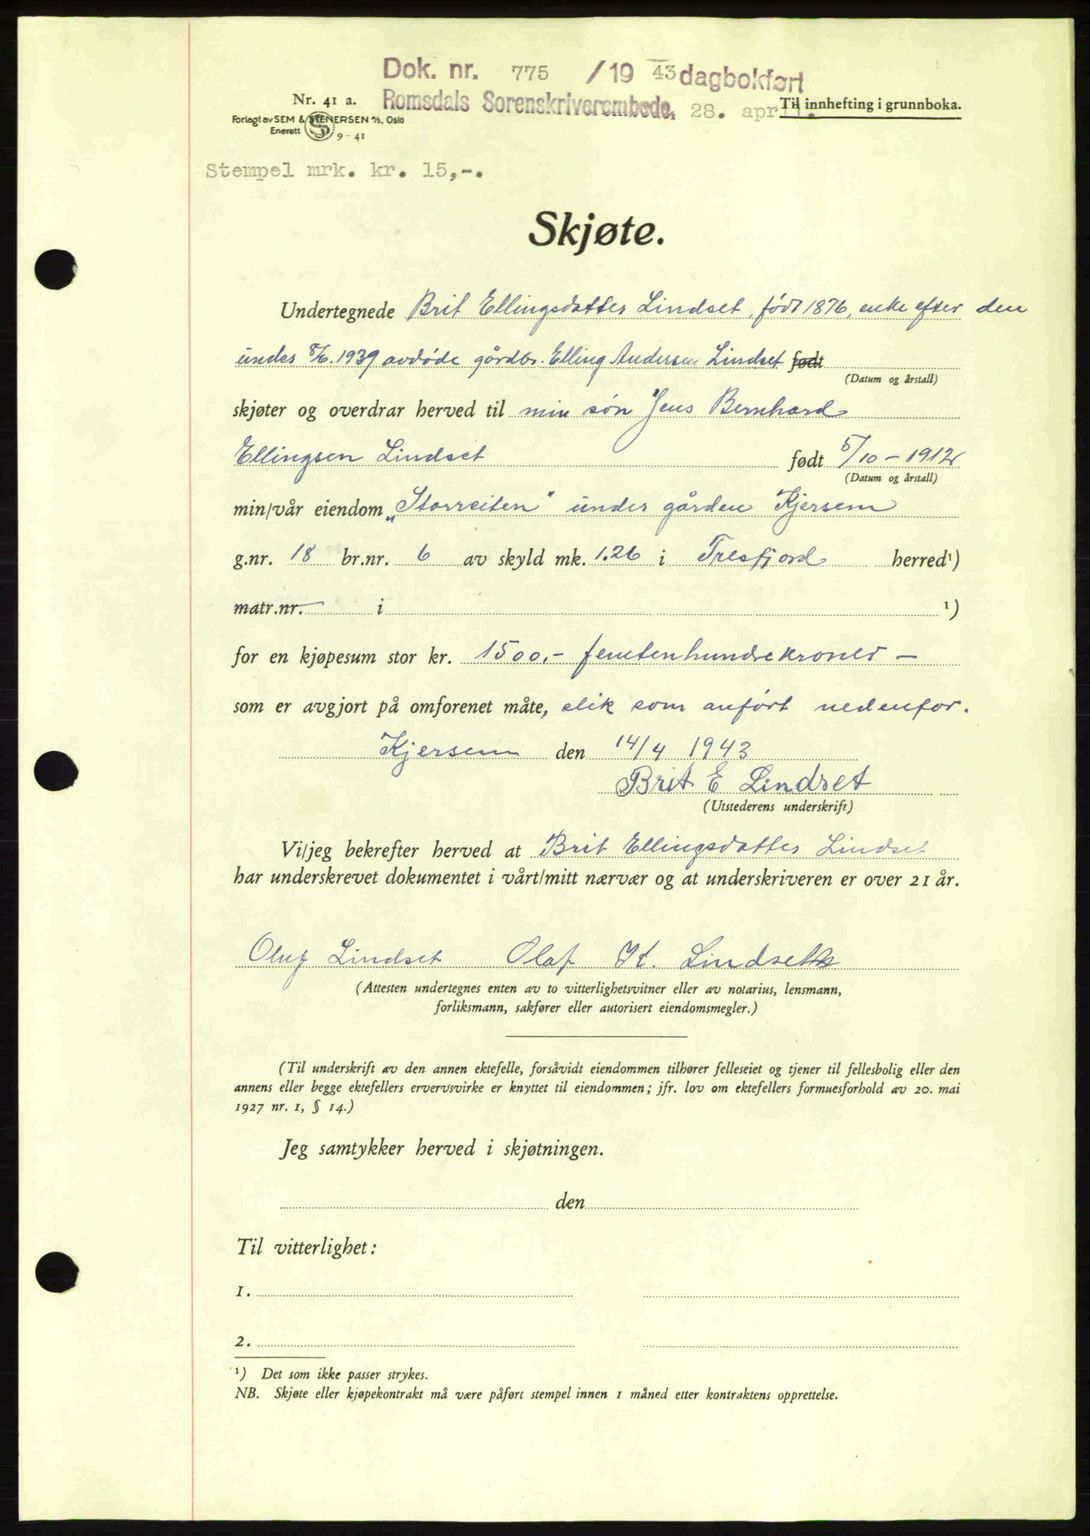 Dok. nr. 775 /19 43 dagbokført
Nr. 41 a.
Romsdals Sorenskriverembede, 28. april.
Til innhefting i grunnboka.
Forlagt av SEM & STENERSEN A/S, Oslo
Enerett S 9-41
Stempel mrk. kr. 15,-.
Skjøte.
Undertegnede Brit Ellingsdatter Lindset, født 1876, enke efter den
under 8/6. 1939 avdøde gårdbr. Elling Andersen Lindset født
(Datum og årstall)
skjøter og overdrar herved til min søn Jens Bernhard
Ellingsen Lindset født 5/10-1912
(Datum og årstall)
min/vår eiendom „Storreiten" under gården Kjersem
g.nr. 18 br.nr. 6 av skyld mk. 1.26 i Tresfjord herred¹)
matr.nr. i ¹)
for en kjøpesum stor kr. 1500,- femtenhundrekroner —
som er avgjort på omforenet måte, slik som anført nedenfor.
Kjersem den 14/4 1943
Brit E Lindset
(Utstederens underskrift)
Vi/jeg bekrefter herved at Brit Ellingsdatter Lindset
har underskrevet dokumentet i vårt/mitt nærvær og at underskriveren er over 21 år.
Oluf Lindset Olaf K. Lindseth
(Attesten undertegnes enten av to vitterlighetsvitner eller av notarius, lensmann,
forliksmann, sakfører eller autorisert eiendomsmegler.)
(Til underskrift av den annen ektefelle, forsåvidt eiendommen tilhører felleseiet og tjener til fellesbolig eller den
annens eller begge ektefellers ervervsvirke er knyttet til eiendommen; jfr. lov om ektefellers formuesforhold av 20. mai
1927 nr. 1, § 14.)
Jeg samtykker herved i skjøtningen.
den
Til vitterlighet:
1.
2.
¹) Det som ikke passer strykes.
NB. Skjøte eller kjøpekontrakt må være påført stempel innen 1 måned etter kontraktens opprettelse.